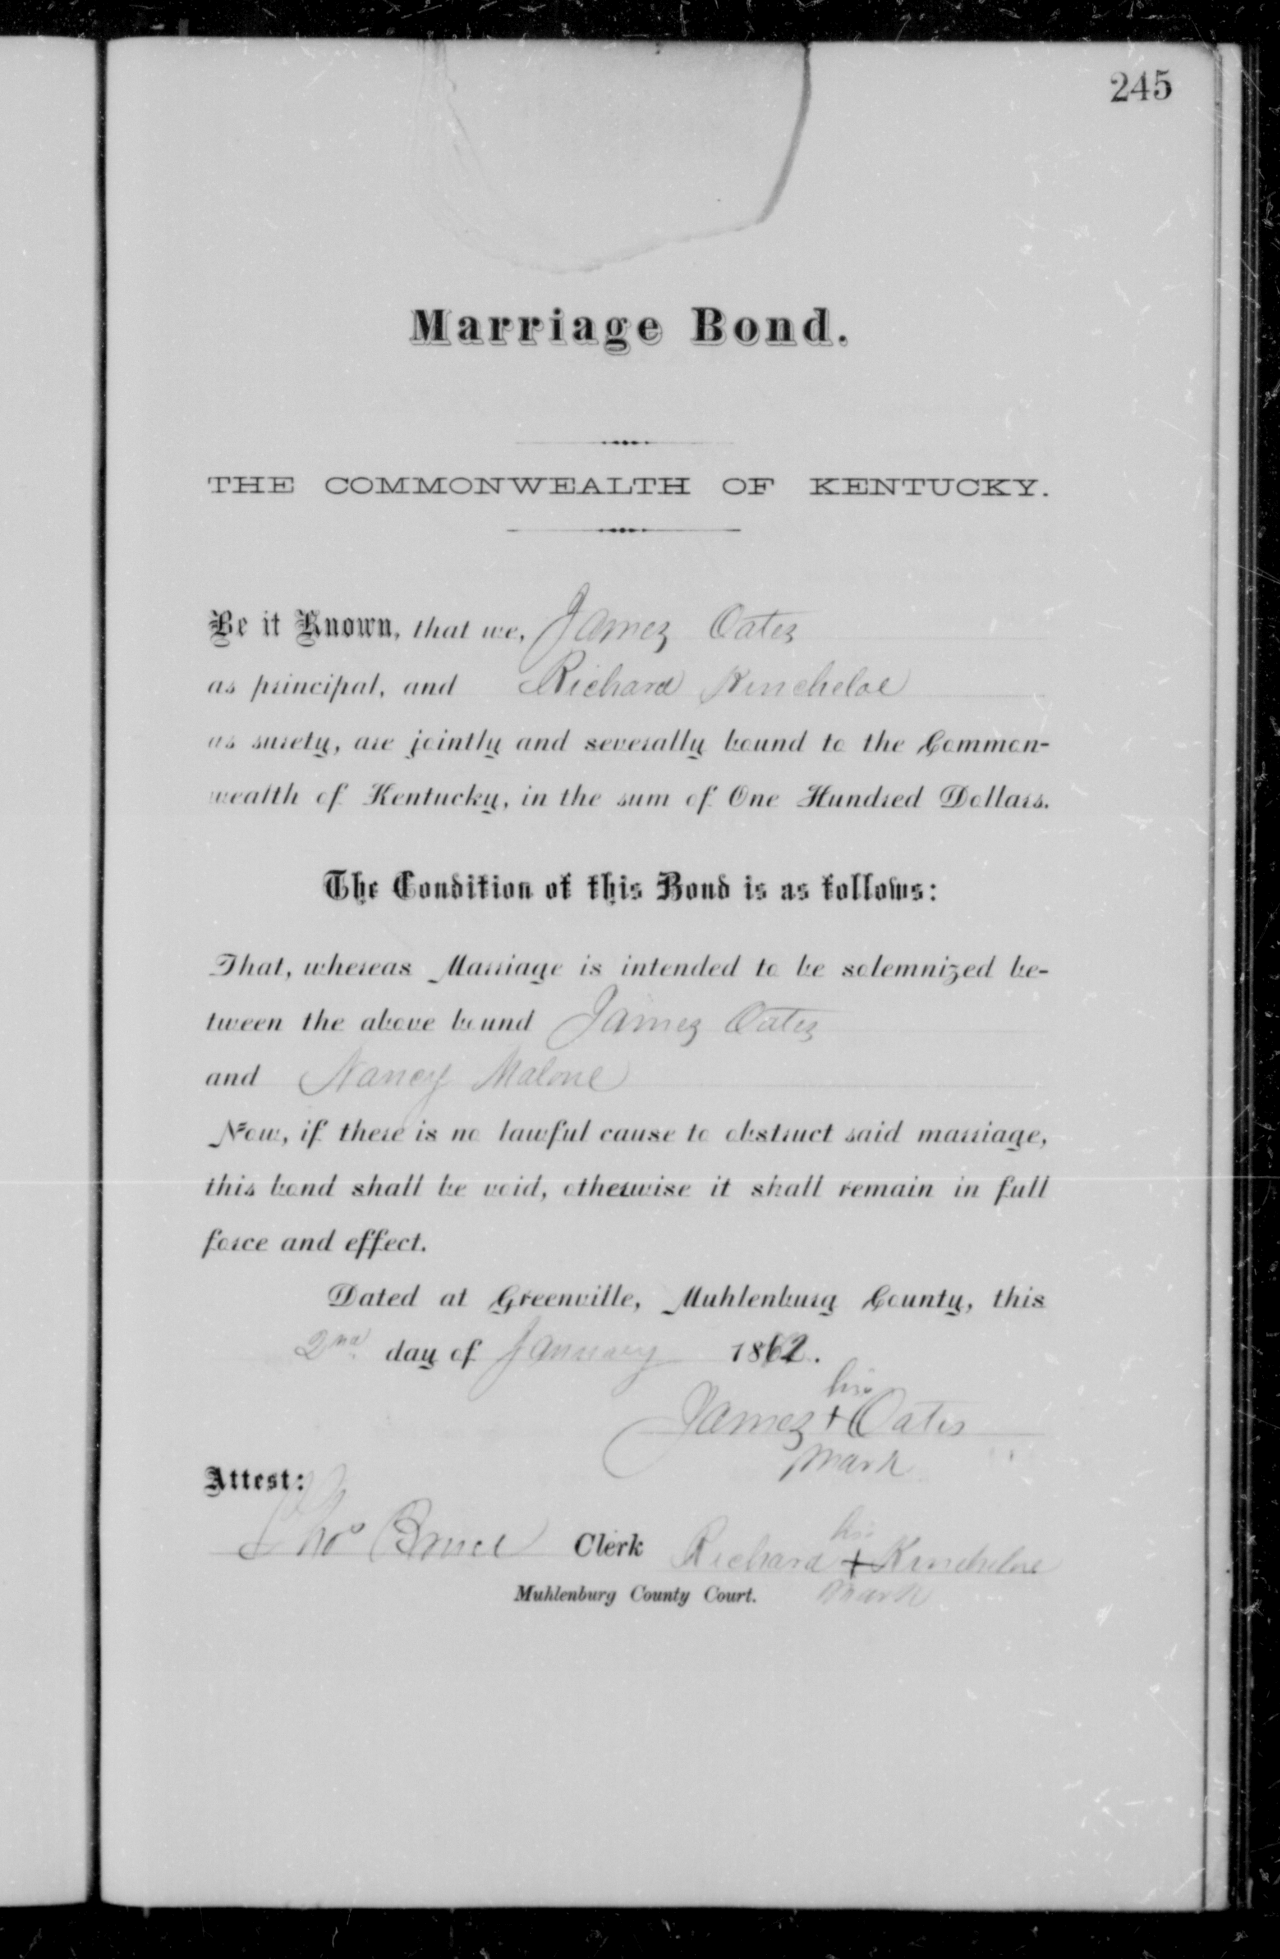 245
Marriage Bond.
THE COMMONWEALTH OF KENTUCKY.
Be it Known, that we, James Oates
as principal, and Richard Kincheloe
as surety, are jointly and severally bound to the Common-
wealth of Kentucky, in the sum of One Hundred Dollars.
The Condition of this Bond is as follows:
That, whereas Marriage is intended to be solemnized be-
tween the above bound James Oates
and Nancy Malone
Now, if there is no lawful cause to obstruct said marriage,
this bond shall be void, otherwise it shall remain in full
force and effect.
Dated at Greenville, Muhlenburg County, this
2nd day of January 1862.
his
James + Oates
mark
Attest:
Thos Bruce Clerk
Muhlenburg County Court.
his
Richard + Kincheloe
mark